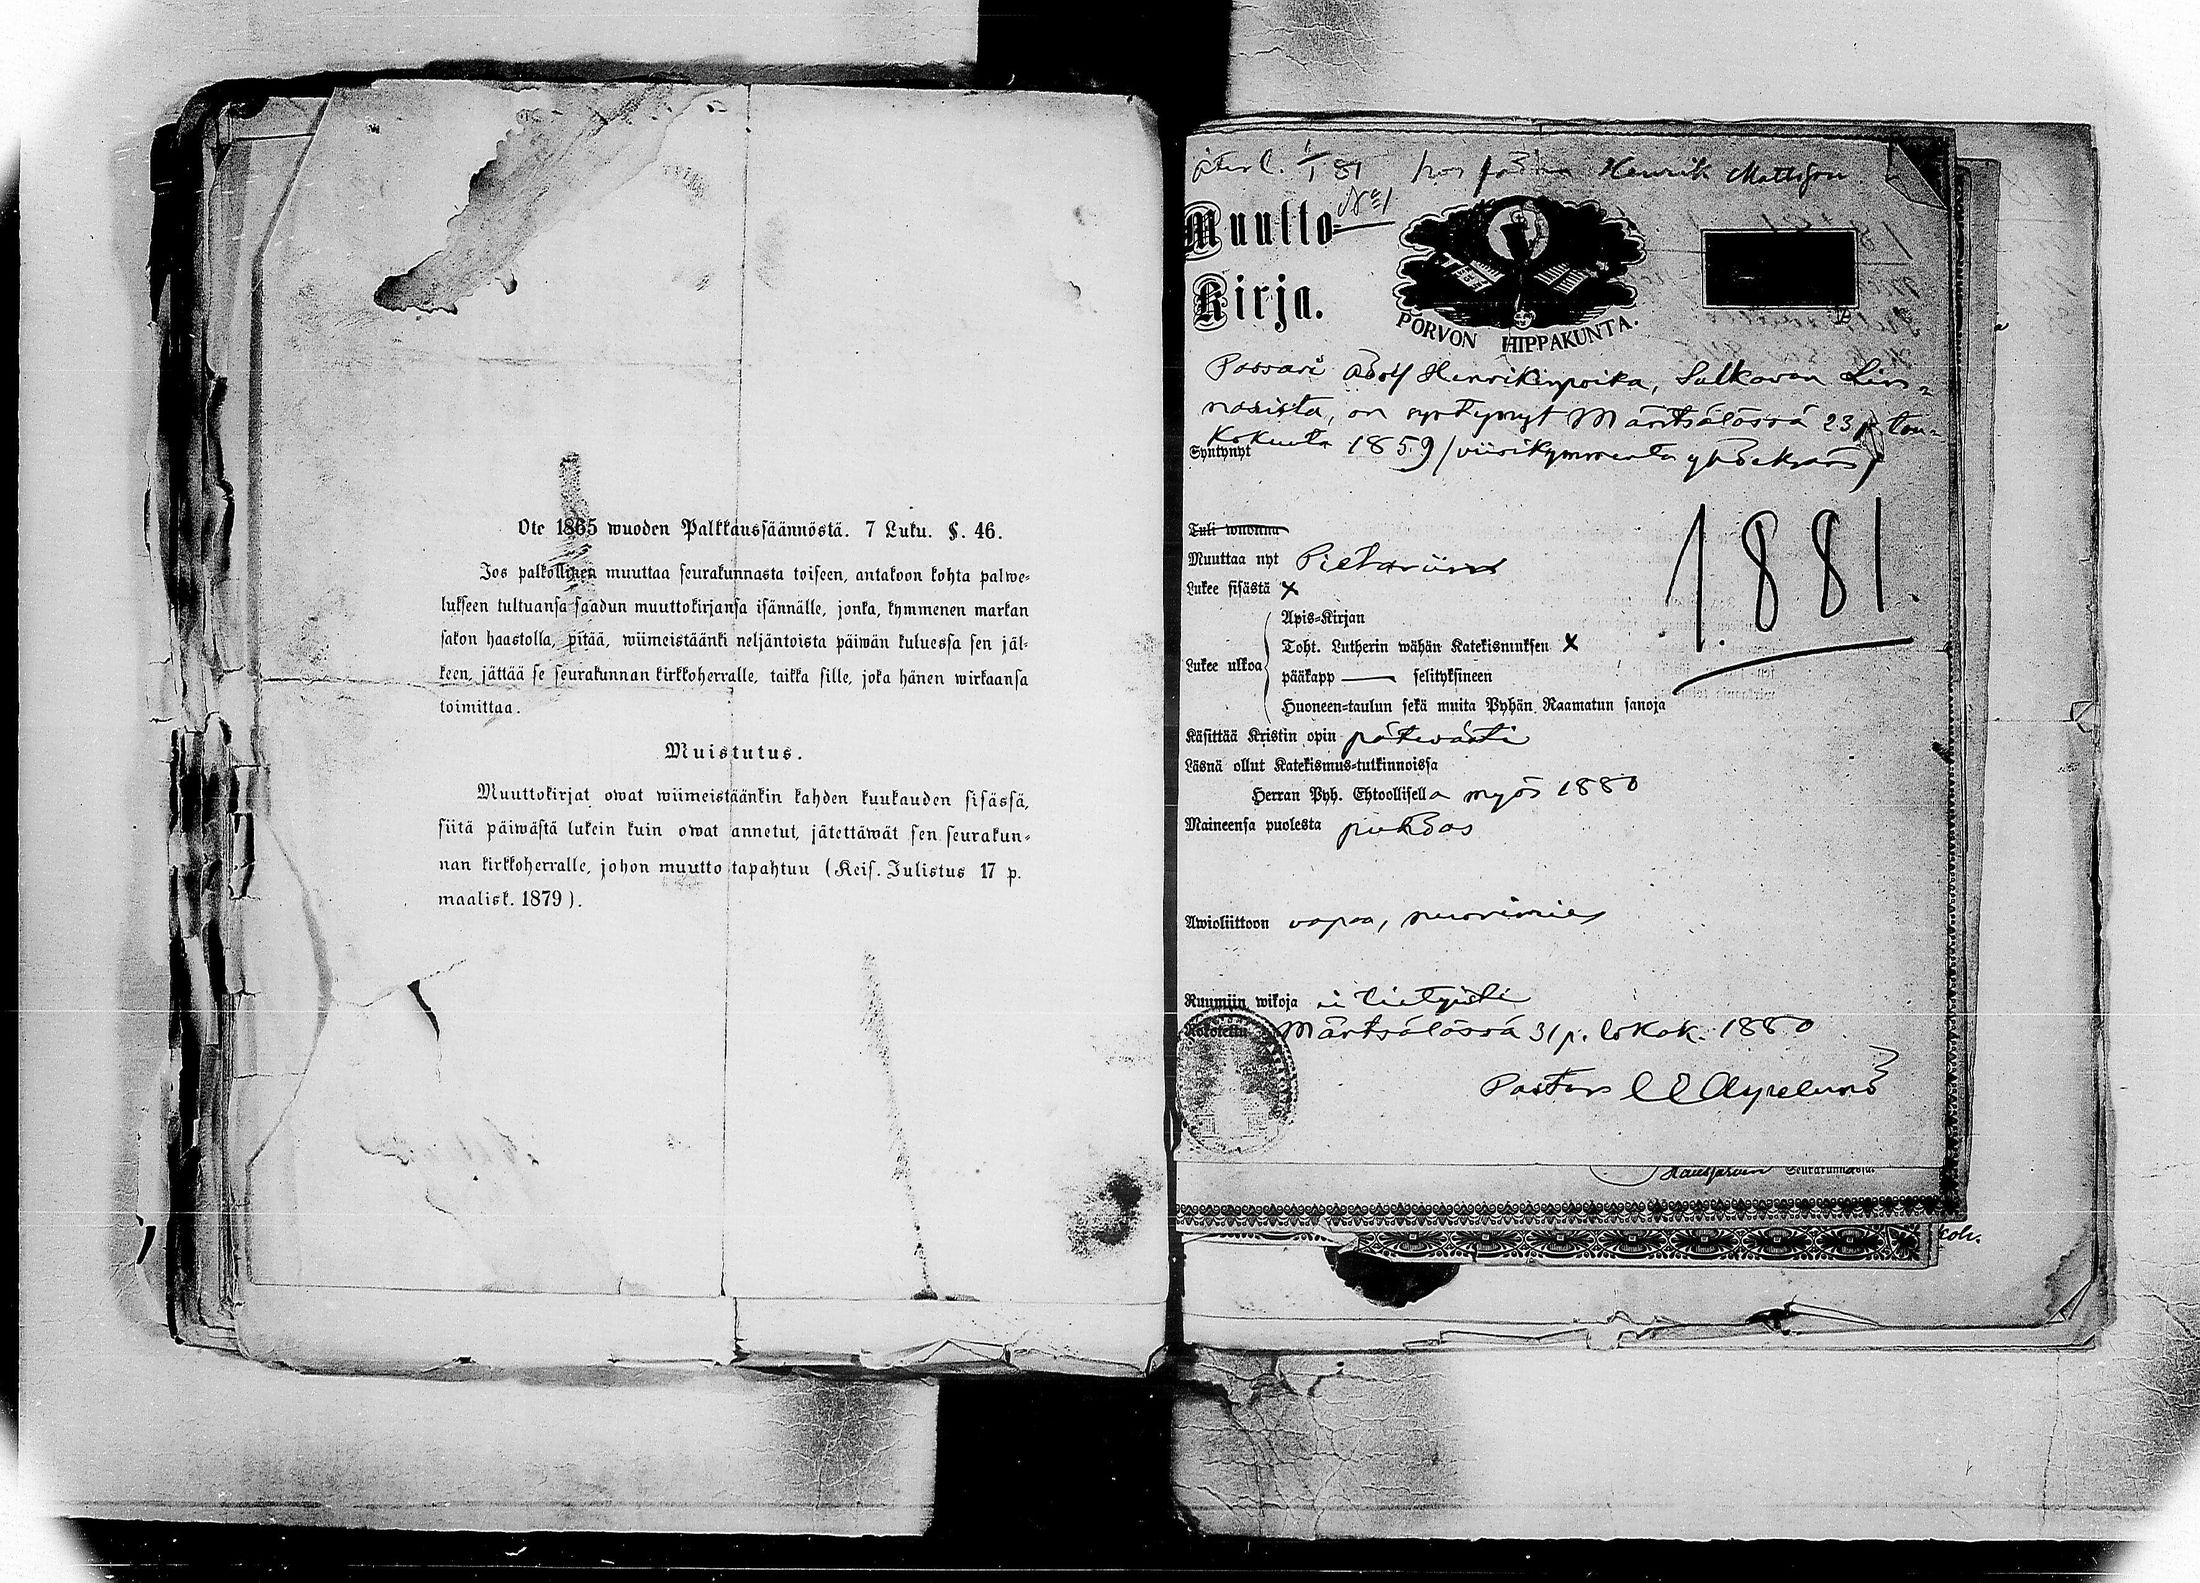 Ote 1865 wuoden Palkkaussäännöstä. 7 Luku. §. 46.
Jos palkollinen muuttaa seurakunnasta toiseen, antakoon kohta palwe-
lukseen tultuansa saadun muuttokirjansa isännälle, jonka, kymmenen markan
sakon haastolla, pitää, wiimeistäänki neljäntoista päiwän kuluessa sen jäl-
keen, jättää se seurakunnan kirkkoherralle, taikka sille, joka hänen wirkaansa
toimittaa.
Muistutus.
Muuttokirjat owat wiimeistäänkin kahden kuukauden sisässä,
siitä päiwästä lukein kuin owat annetut, jätettäwät sen seurakun-
nan kirkkoherralle, johon muutto tapahtuu (Keis. Julistus 17 p.
maalisk. 1879).
1/1 81 Henrik Mattsson
No 1
Muutto-
Kirja.
PORVON HIPPAKUNTA.
Adolf Henrikinpoika, Sulkavan
on syntynyt Mäntsälässä 23 p. tou-
Syntynyt kokuuta 1859 / viisikymmentä yhdeksän /
Tuli wuonna
Muuttaa nyt Pietariin
1881.
Lukee sisästä x
Apis-Kirjan
Toht. Lutherin wähän Katekismuksen x
Lukee ulkoa
pääkapp selityksineen
Huoneen-taulun sekä muita Pyhän Raamatun sanoja
Käsittää Kristin opin pätevästi
Läsnä ollut Katekismus-tutkinnoissa
Herran Pyh. Ehtoollisella myös 1880
Maineensa puolesta puhdas
Awioliittoon vapaa, nuorimies
Ruumiin wikoja ei tietyisti
Todistetaan Mäntsälässä 31 p. lokak. 1880
Pastor
Hausjärven Seurakunnassa.